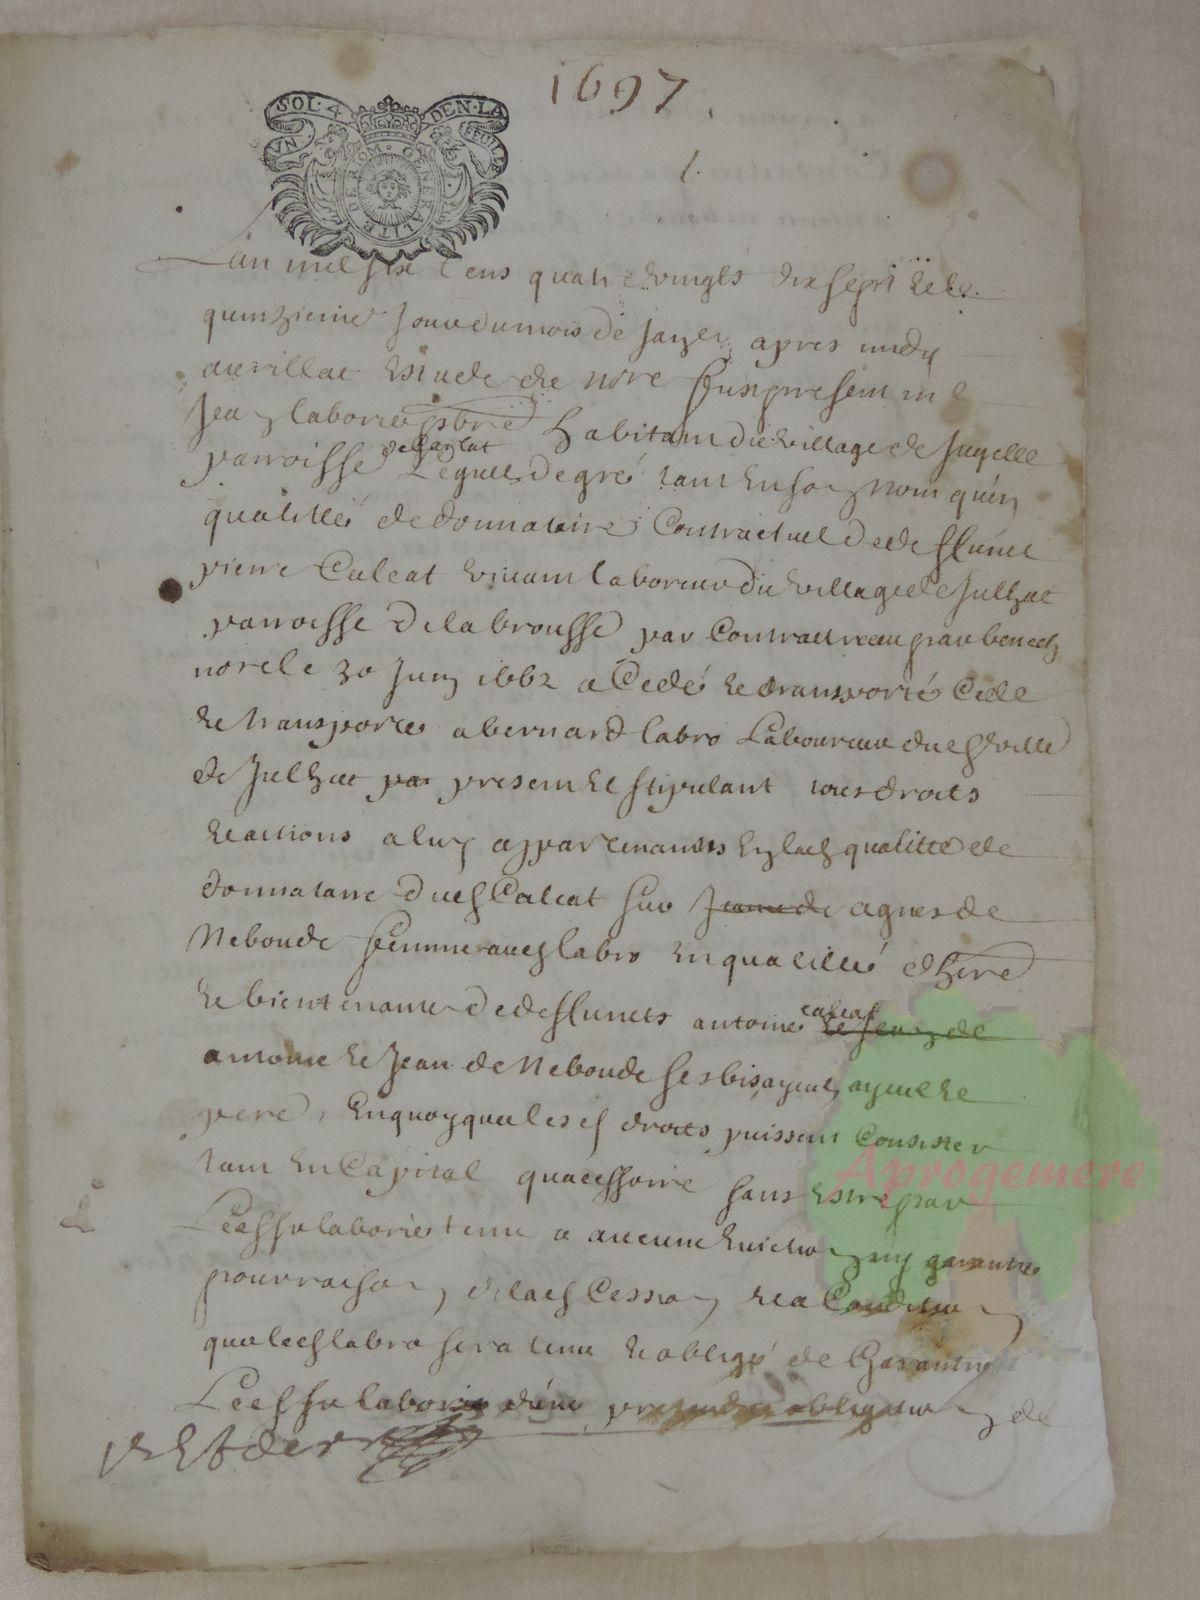 1697
1.
UN SOL·4 DEN·LA FEUILLE
GENERALITE DE RIOM
Lan mil six cens quatre vingts dix sept et le
quinzieme jour du mois de
apres midy
aurillac estude de nore fust present
Jean laborie pbre habitant du village de Jugelle
parroisse de carlat Lequel de gré tant en son nom quen
qualitté de donnataire Contractuel de deffunct
pierre Calcat vivant laboreur du village de Julhac
parroisse de labrousse par Contract receu par benech
nore le 30 Juin 1662 a Cedé et transporté Cede
et transporte a bernard labro Laboureur dud village
de Julhac par present et stipulant tous droits
et actions a luy appartenantes en lad qualitté de
donnataire dud Calcat sur Jeanne de agnes de
Neboude femme aud labro en qualitté dhere
et bientenante de deffuncts antoine calcat et Jean de
antoine et Jean de Neboude ses bisayeul, ayeul et
pere, En quoy que lesd droits puissent Consister
tant en Capital quaccessoire sans estre par
Led sr laborie tenu a aucune eviction ny garantie
pour raison de lad Cession et a Condition
que led labro sera tenu et obligé de Garantir
Led sr laborie dune pretendue obligation de